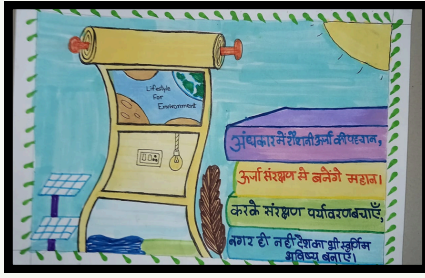 Lifestyle
for
Environment
अंधकार में रौशनी ऊर्जा की पहचान,
ऊर्जा संरक्षण से बनेंगे महान।
करके संरक्षण पर्यावरण बचाएँ,
नगर ही नही देश का भी स्वर्णिम
भविष्य बनाएँ।